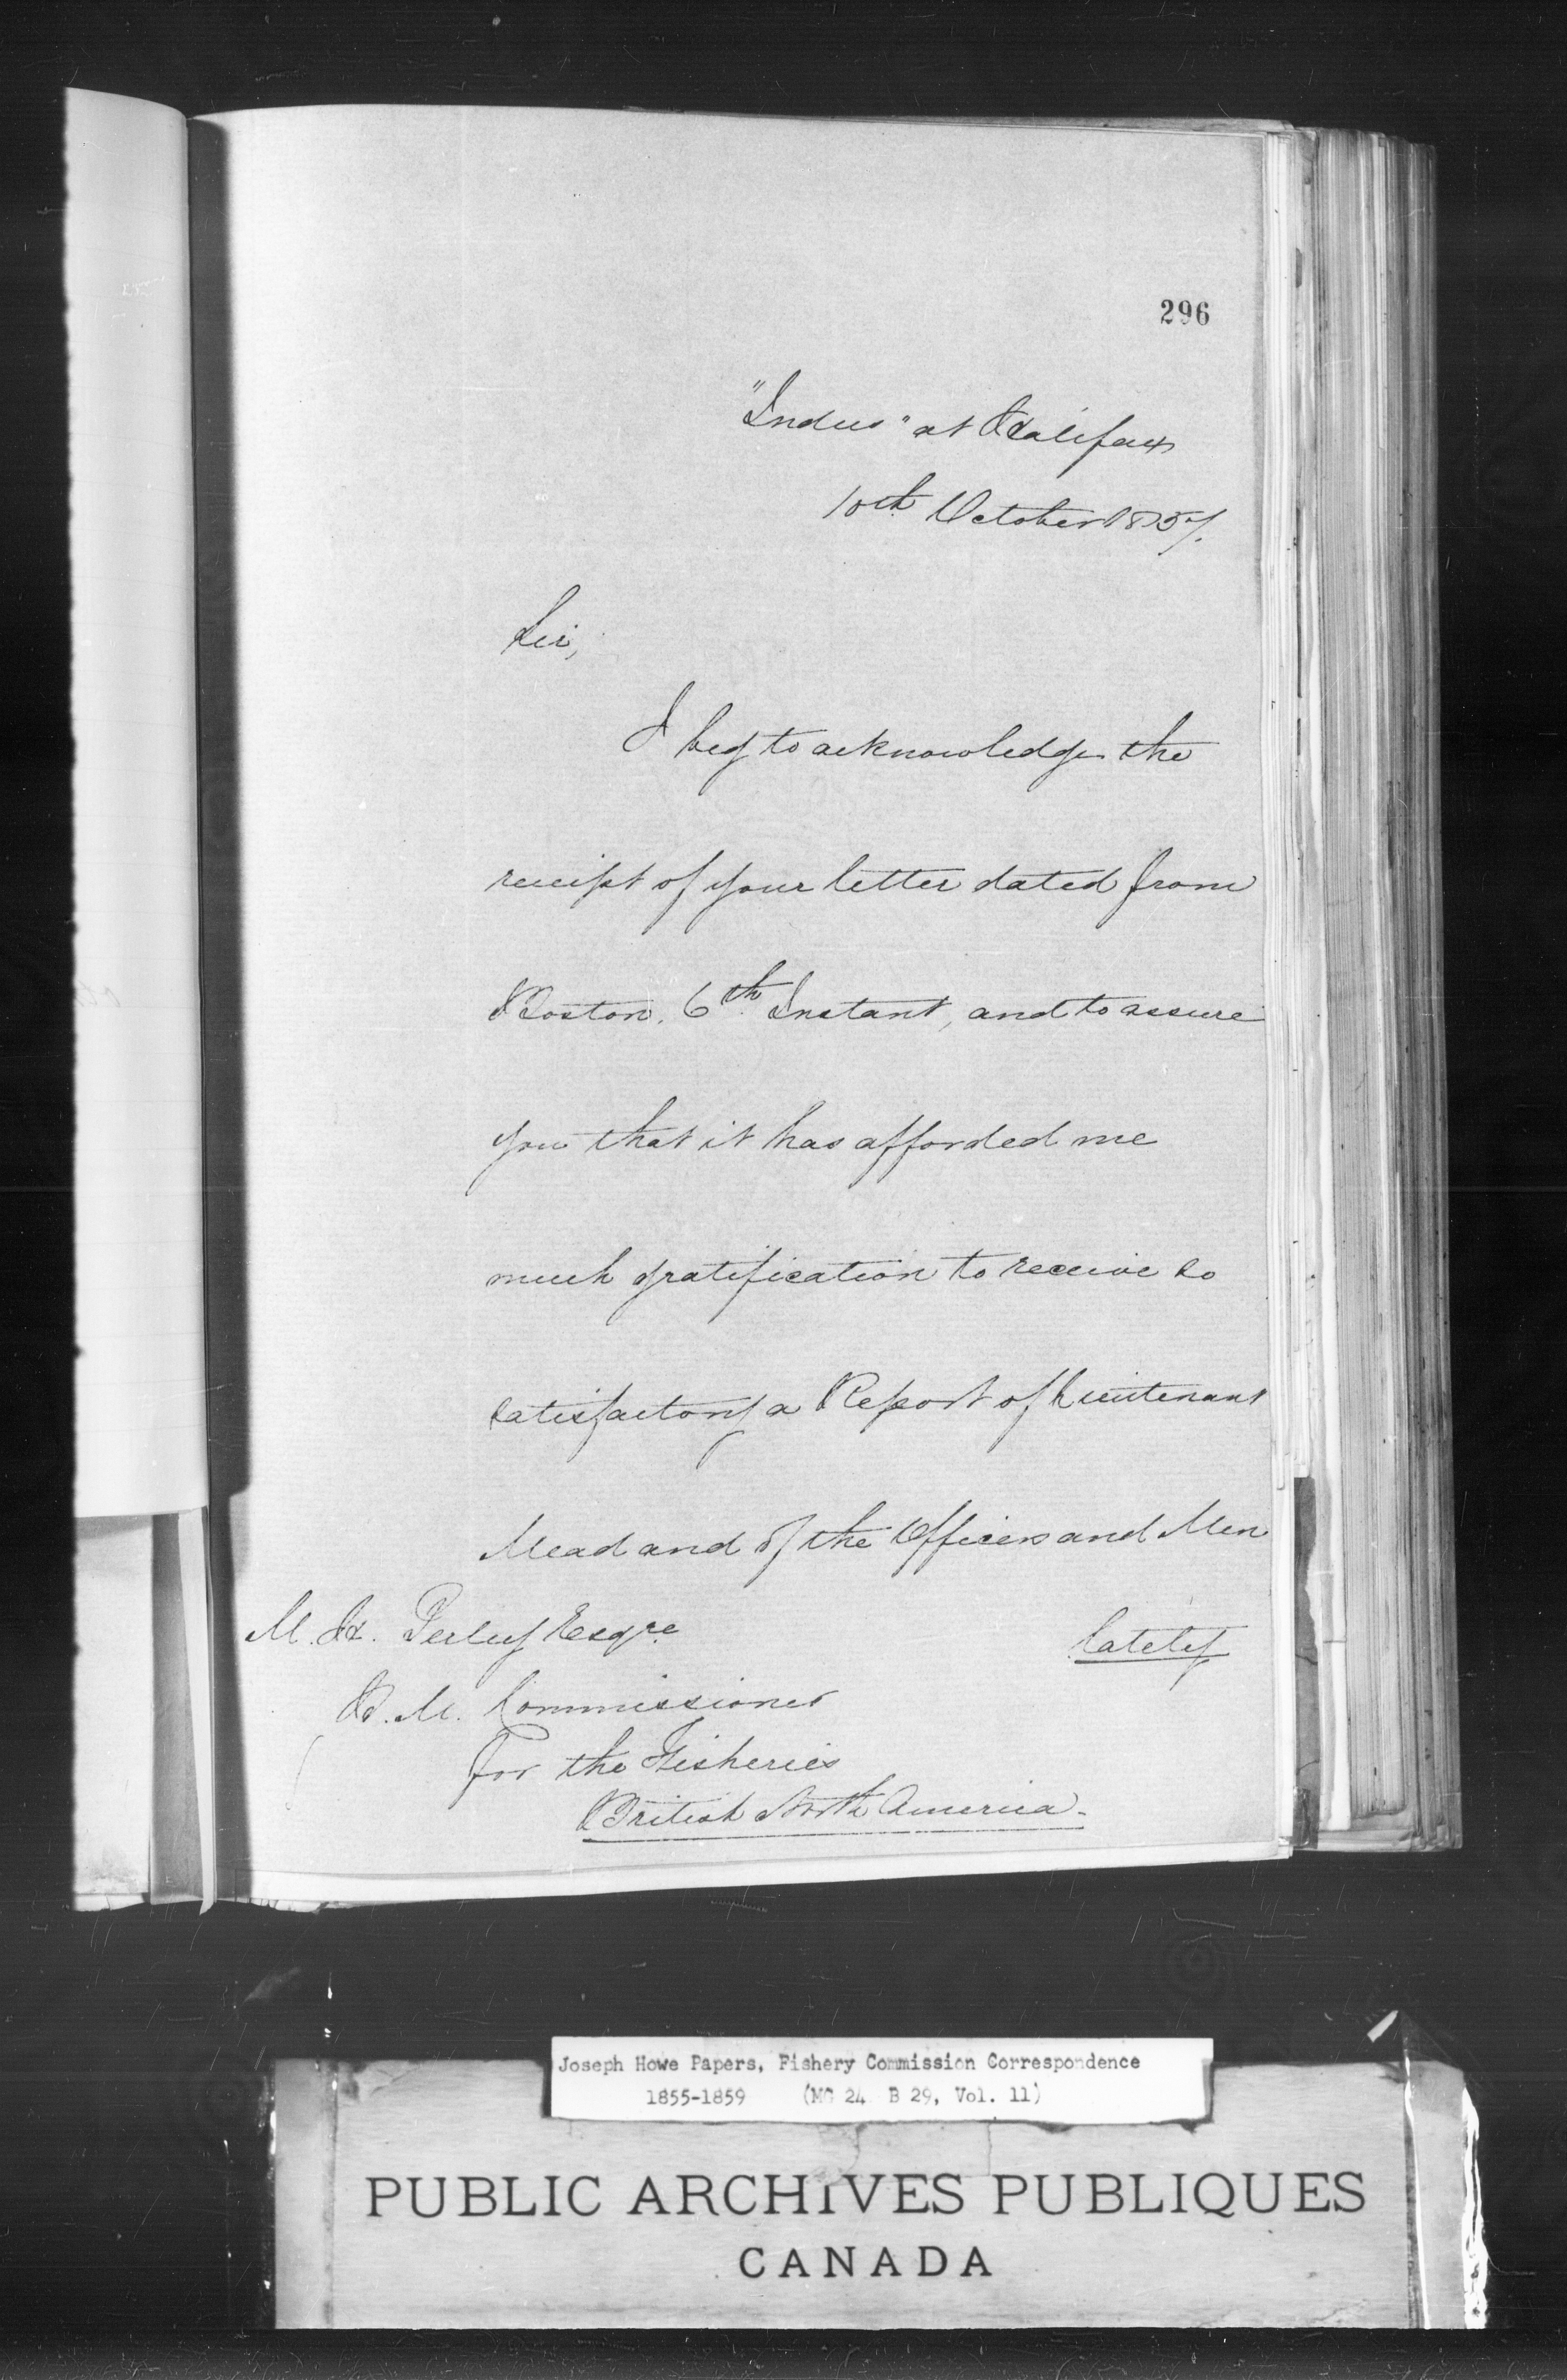 296
"Indus" at Halifax
10th October 1857.
Sir,
I beg to acknowledge the
receipt of your letter dated from
Boston, 6th Instant, and to assure
you that it has afforded me
much gratification to receive so
satisfactory a Report of Lieutenant
Mead and of the Officers and Men
lately
M. H. Perley Esqre
H. M. Commissioner
for the Fisheries
British North America.
Joseph Howe Papers, Fishery Commission Correspondence
1855-1859 (MG 24 B 29, Vol. 11)
PUBLIC ARCHIVES PUBLIQUES
CANADA